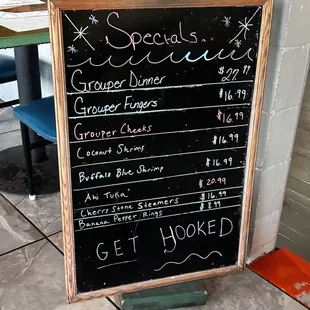 Specials
Grouper Dinner $22.99
Grouper Fingers $16.99
Grouper Cheeks $16.99
Coconut Shrimp $16.99
Buffalo Blue Shrimp $16.99
Ahi Tuna $20.99
Cherry Stone Steamers $16.99
Banana Pepper Rings $8.99
GET HOOKED